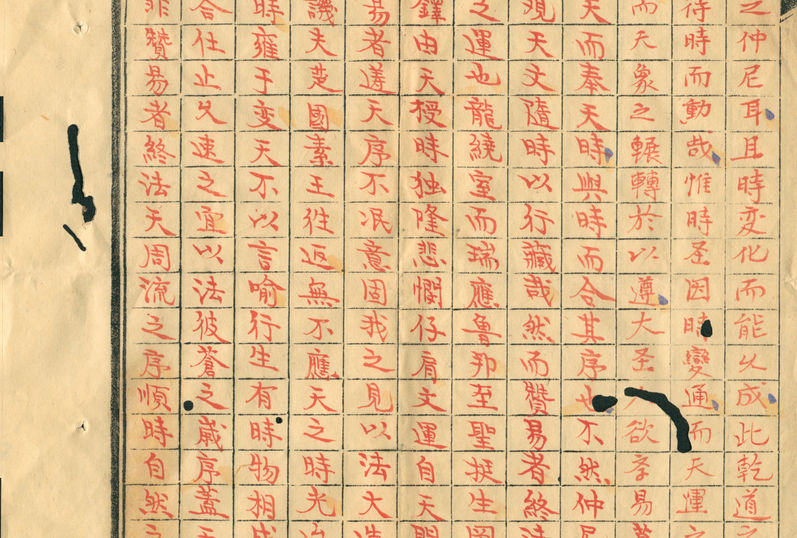 之仲尼耳且時変化而能久成此乾道之
待時而動哉惟時圣因時變通而天運之
而天象之輾轉於以遵大圣人欲李易其
天而奉天時與時而合其序也不然仲尼
观天文隨時以行藏哉然而贊易者終法
之運也龍繞室而瑞應魯邦至聖挺生國
鐸由天授時独隆悲憫仔肩文運自天開
易者遠天序不泯意固我之見以法大造
譏夫楚國素王往返無不應天之時光
時雍于变天不以言喻行生有時物相成
合仕止久速之宜以法彼蒼之歲序蓋天
非贊易者終法天周流之序順時自然之